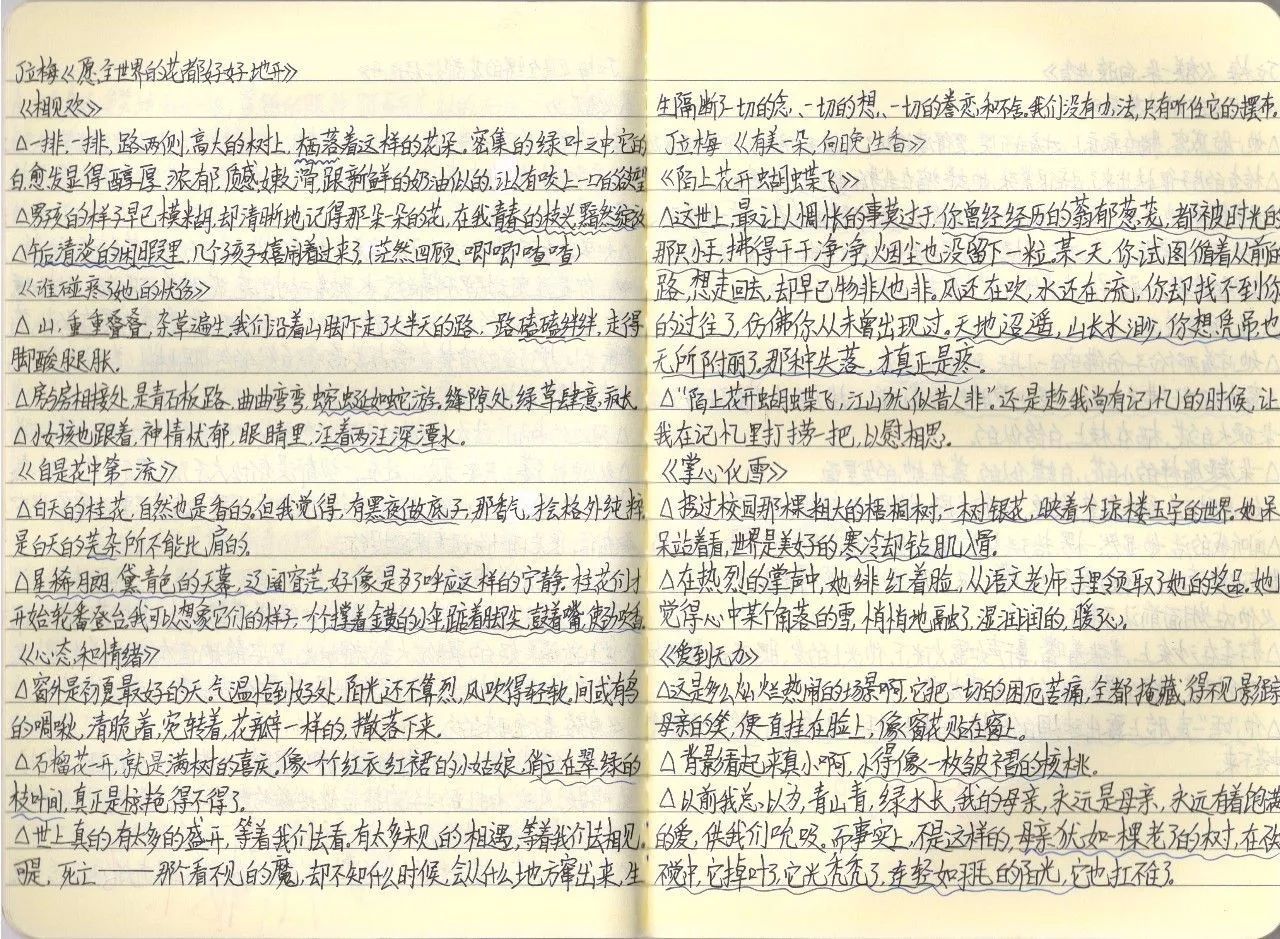 丁立梅《愿全世界的花都好好地开》
《相见欢》
△一排,一排,路两侧,高大的树上,栖落着这样的花朵。密集的绿叶之中,它的
白,愈发显得醇厚、浓郁,质感嫩滑,跟新鲜的奶油似的,让人有咬上一口的欲望
△男孩的样子早已模糊,却清晰地记得那朵一朵的花,在我青春的枝头,黯然绽放
△午后清淡的闲暇里,几个孩子嬉闹着过来了。(茫然四顾、唧唧喳喳)
《谁碰疼了她的忧伤》
△山,重重叠叠,杂草遍生。我们沿着山脚下走了大半天的路,一路磕磕绊绊,走得
脚酸腿胀。
△房与房相接处,是青石板路,曲曲弯弯,蜿蜒如蛇游。缝隙处,绿草肆意疯长
△小女孩也跟着,神情忧郁,眼睛里,汪着两汪深潭水。
《自是花中第一流》
△白天的桂花,自然也是香的。但我觉得,有黑夜做底子,那香气,才会格外纯粹,
是白天的芜杂所不能比肩的。
△星稀月朗,黛青色的天幕,辽阔空茫,好像是为了呼应这样的宁静。桂花们才
开始轮番登台,我可以想象它们的样子,一个个撑着金黄的小伞,踮着脚尖,鼓着嘴,使劲吹香
《心态和情绪》
△窗外是初夏最好的天,气温恰到好处,阳光还不算烈,风吹得轻软,间或有鸟
的啁啾,清脆着,宛转着,花瓣一样的,撒落下来。
△石榴花一开,就是满树的喜庆。像一个个红衣红裙的小姑娘,俏立在翠绿的
枝叶间,真正是惊艳得不得了。
△世上真的有太多的盛开,等着我们去看。有太多未见的相遇,等着我们去相见。
可是,死亡——那个看不见的魔,却不知什么时候,会从什么地方窜出来,生
生隔断了一切的念、一切的想、一切的眷恋和不舍。我们没有办法,只有听任它的摆布。
丁立梅《有美一朵,向晚生香》
《陌上花开蝴蝶飞》
△这世上,最让人惆怅的事莫过于,你曾经经历的蓊郁葱茏,都被时光的
那只小手,拂得干干净净,烟尘也没留下一粒。某一天,你试图循着从前的
路,想走回去,却早已物非人也非。风还在吹,水还在流,你却找不到你
的过往了,仿佛你从未曾出现过。天地迢遥,山长水渺,你想凭吊也
无所附丽了。那种失落,才真正是疼。
△“陌上花开蝴蝶飞,江山犹似昔人非”。还是趁我尚有记忆的时候,让
我在记忆里打捞一把,以慰相思。
《掌心化雪》
△拐过校园那棵粗大的梧桐树,一树银花,映着个琼楼玉宇的世界。她呆
呆站着看,世界是美好的,寒冷却钻肌入骨。
△在热烈的掌声中,她绯红着脸,从语文老师手里领取了她的奖品。她
觉得心中某个角落的雪,悄悄地融了,湿润润的,暖了心。
《爱到无力》
△这是多么灿烂热闹的场景啊,它把一切的困厄苦痛,全都掩藏得不见影踪
母亲的笑,便一直挂在脸上,像窗花贴在窗上。
△背影看起来真小啊,小得像一枚皱褶的核桃。
△以前我总以为,青山青,绿水长,我的母亲,永远是母亲,永远有着饱满
的爱,供我们吮吸。而事实上,不是这样的,母亲犹如一棵老了的树,在
觉中,它掉叶了,它光秃秃了,连轻如羽毛的阳光,它也扛不住了。